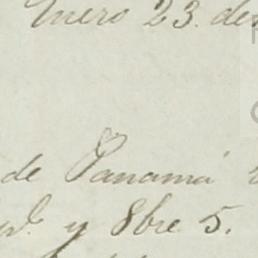 Enero 23. de
de Panamá
y 8bre 5.